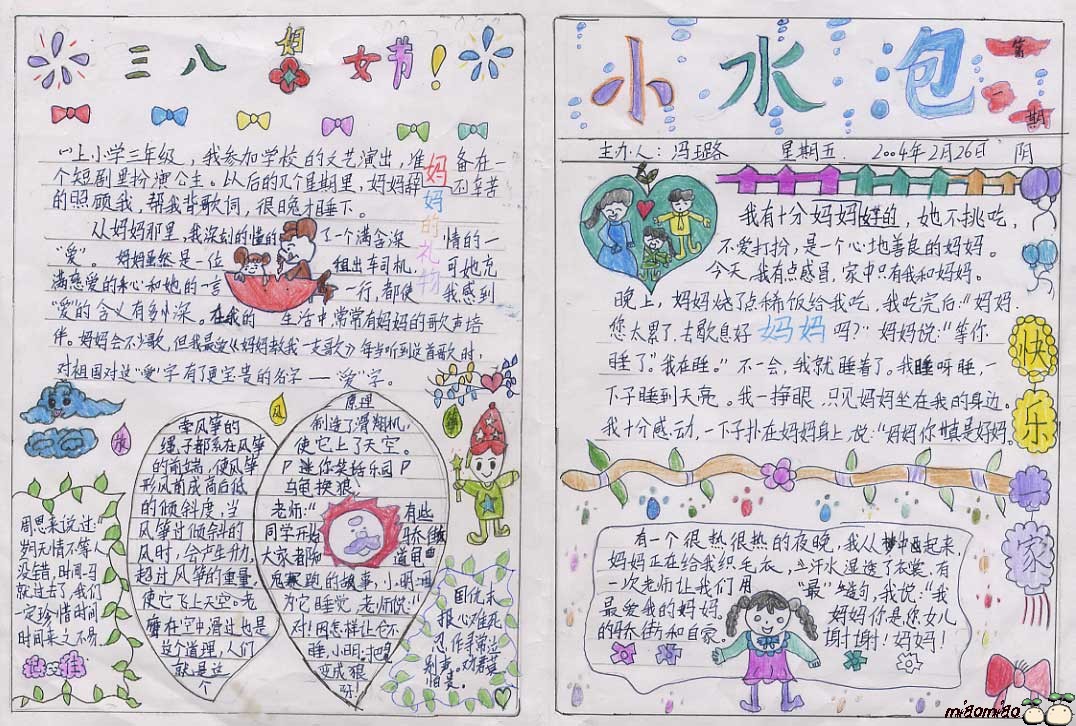 三八妇女节！
上小学三年级，我参加学校的文艺演出，准备在一
个短剧里扮演公主。以后的几个星期里，妈妈辞
的照顾我，帮我背歌词，很晚才睡下。
妈妈的礼物
从妈妈那里，我深刻的懂的了一个满含深情的一
"爱"。妈妈虽然是一位租出车司机，可她充
满恋爱的和她的一言一行，都使我感到
"爱"的含义有多么深。在我的生活中，常常有妈妈的歌声培
伴。妈妈会不少歌，但我最爱《妈妈教我一支歌》每当听到这首歌时，
对祖国对这"爱"字有了更宝贵的名字——"爱"字。
风筝
原理
牵风筝的
绳子都系在风筝
的前端，使风筝
形成前高后低
的倾斜度，当
风筝过倾斜的
风时，会产生升力，
超过风筝的重量，
使它飞上天空。
在空中滑过也是
这个道理，人们
就是这
个
制造了滑翔机，
使它上了天空。
P 迷你笑话乐园 P
乌龟换狼
老师："有些
同学开始骄傲
大家都知道龟
兔赛跑的故事，小明
为它睡觉，老师说："
对！因怎样让它不
睡，小明：把
变成狼
呀！
周恩来说过：
岁月无情不等人
没错，时间马
就过去了，我们
一定珍惜时间
时间来之不易
记住
小水泡
第一期
主办人：冯璐 星期五 2004年2月26日 阴
我有十分妈妈好的，她不挑吃，
不爱打扮，是一个心地善良的妈妈。
今天，我有点感冒，家中只有我和妈妈。
晚上，妈妈烧了点稀饭给我吃，我吃完后："妈妈
您太累了，去歇息好妈妈吗？"妈妈说："等你
睡了。"我在睡。"不一会，我就睡着了。我睡呀睡，一
下子睡到天亮。我一挣眼，只见妈妈坐在我的身边。
我十分感动，一下子扑在妈妈身上，说："妈妈你真是好妈。
快乐一家
有一个很热很热的夜晚，我从梦中西起来，
妈妈正在给我织毛衣，汗水湿透了衣裳。有
一次老师让我们用"最"造句，我说："我
最爱我的妈妈。妈妈你是您女儿
的骄傲和自豪。谢谢！妈妈！
miaomiao